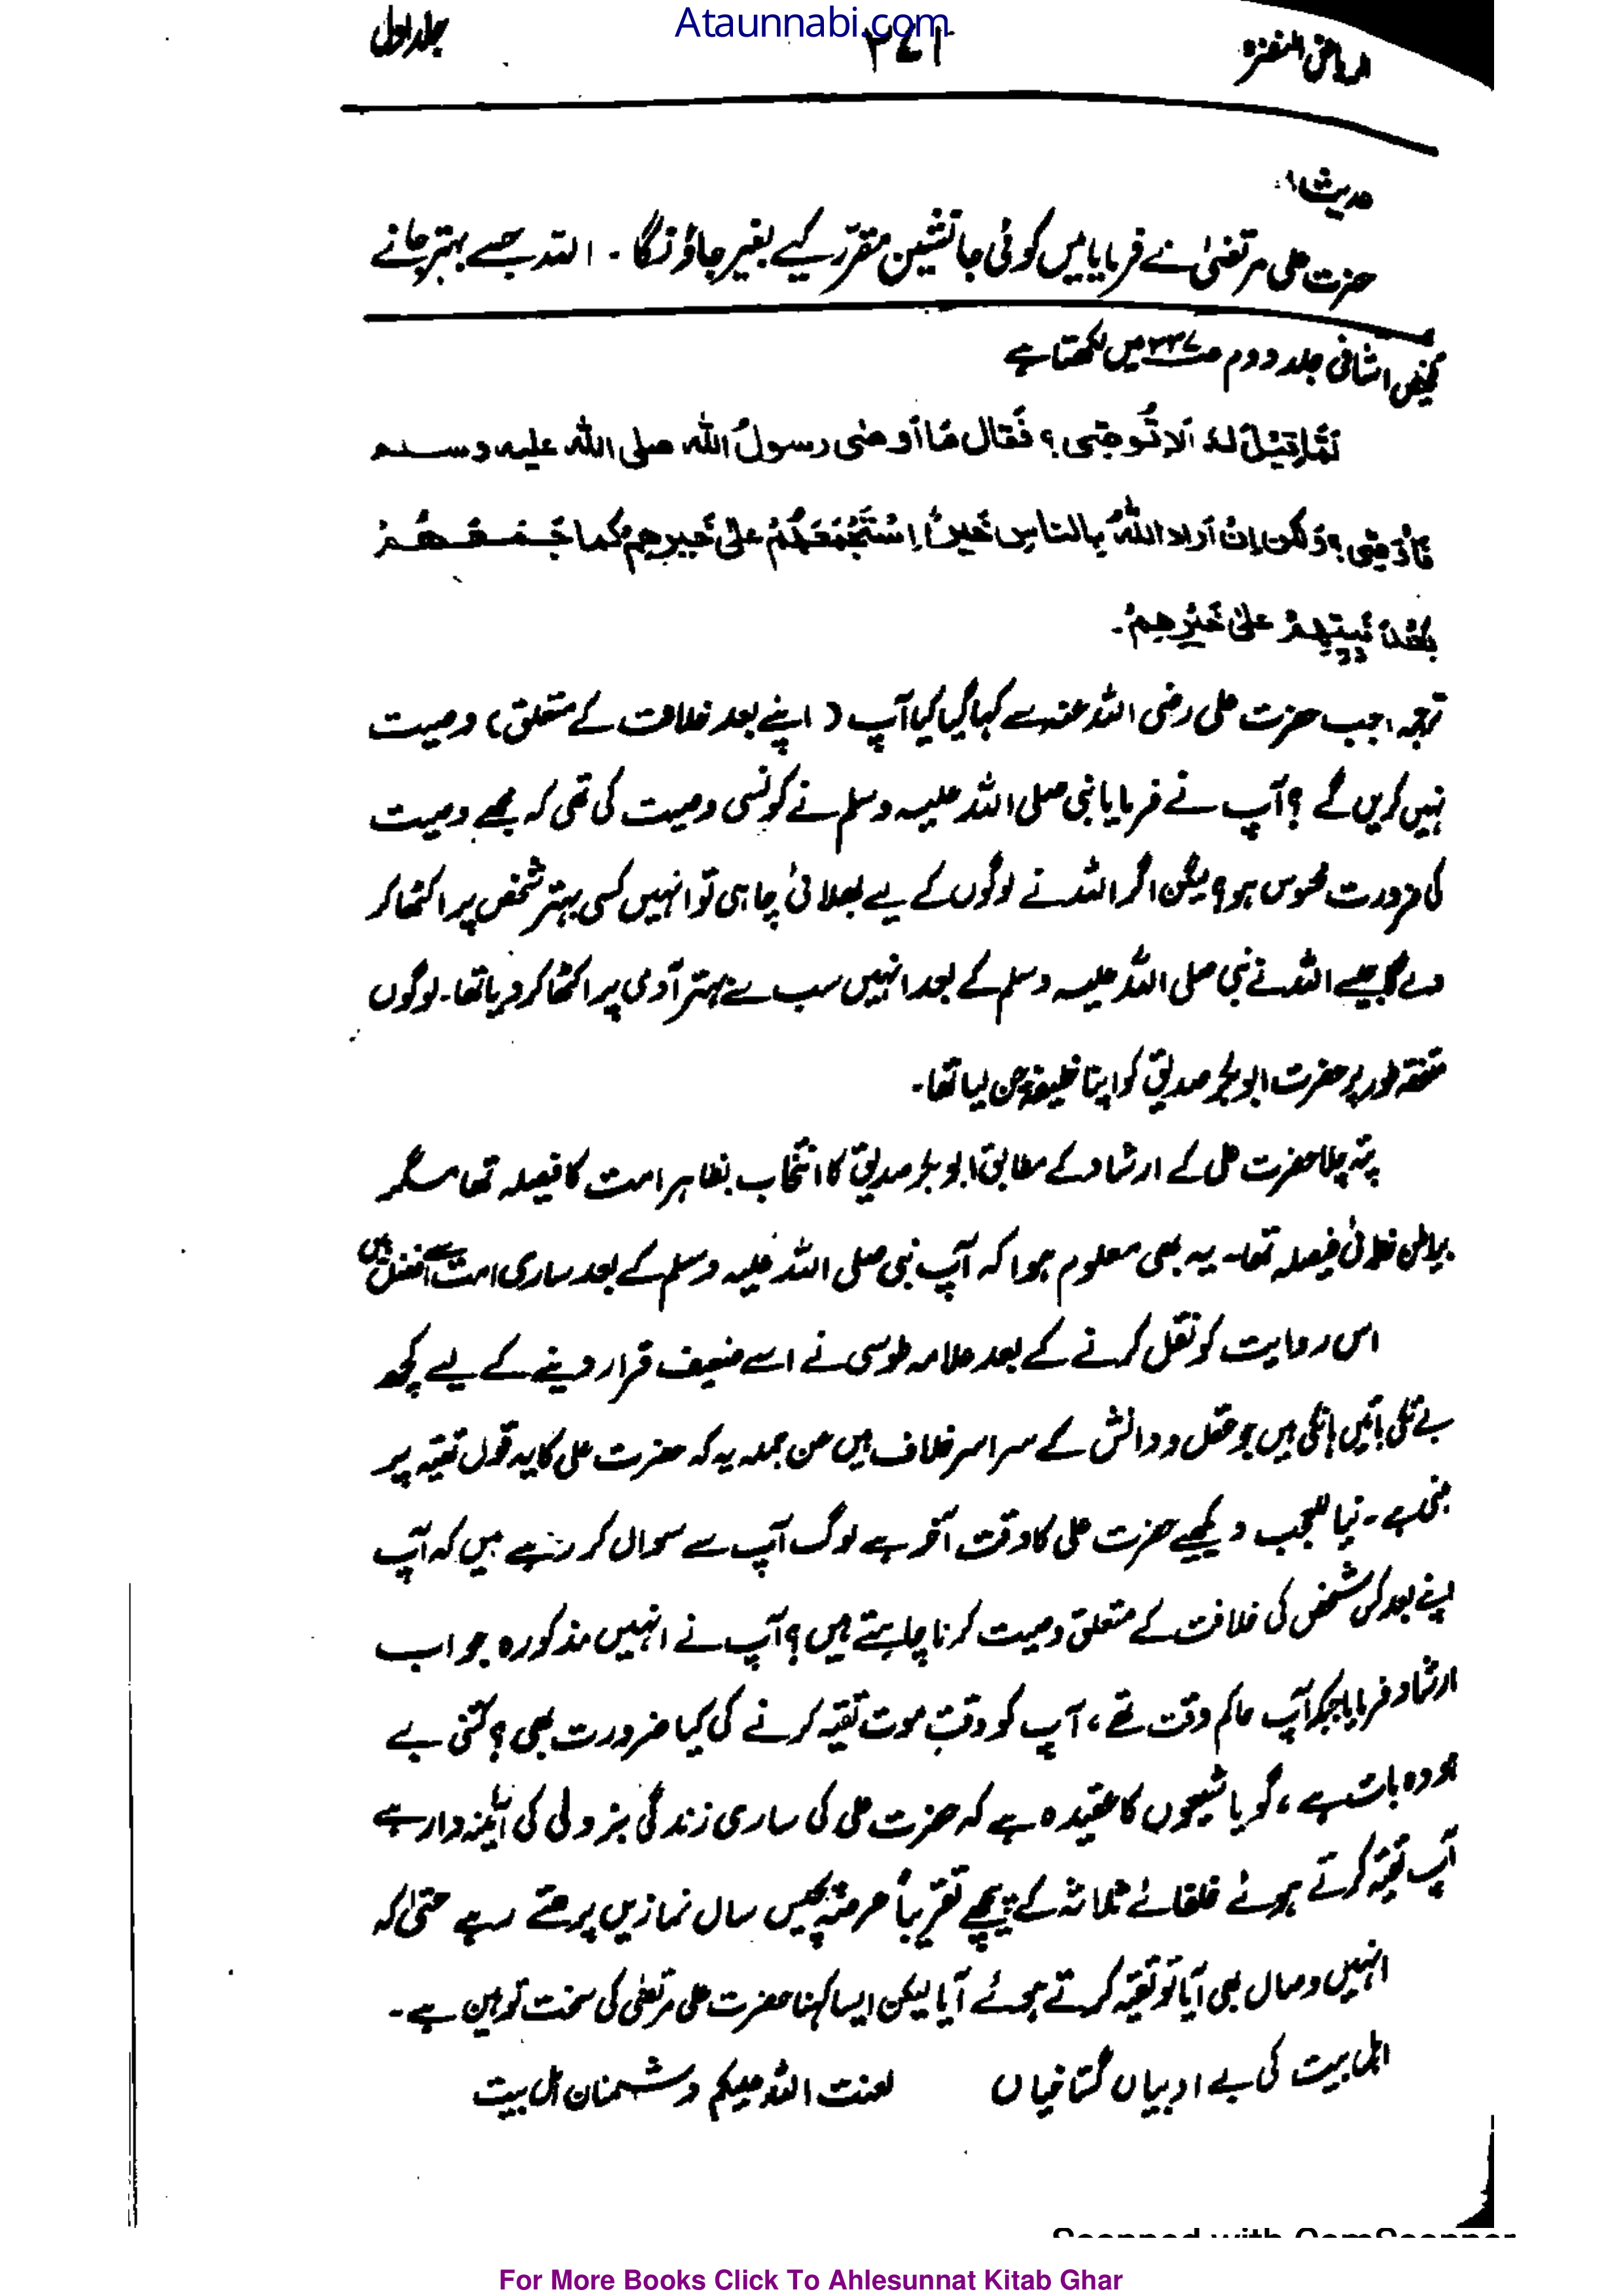 Ataunnabi.com
الریاض النضرہ ۳۷۱ جلد اول
حدیث
حضرت علی مرتضیٰ نے فرمایا میں کوئی جانشین مقرر کیے بغیر جاؤنگا۔ اللہ جسے بہتر جانے
تلخیص الشافی جلد دوم میں لکھتا ہے
لَمَّا قِیْلَ لَهٗ اَلَا تُوصِی؟ فَقَالَ مَا اَوصٰی رسولُ اللّٰہ صلی اللّٰہ علیہ وسلم
فَاُوْصِی؟ وَلٰکِن اِنْ اَرادَ اللّٰهُ بِالنَّاسِ خَیْرًا اِسْتَجْمَعَهُمْ عَلٰی خَیرِهِمْ کما جَمَعَهُمْ
بَعْدَ نَبِیِّهِمْ عَلٰی خَیْرِهِمْ۔
ترجمہ، جب حضرت علی رضی اللہ عنہ سے کہا گیا کیا آپ (اپنے بعد خلافت کے متعلق) وصیت
نہیں کریں گے؟ آپ نے فرمایا نبی صلی اللہ علیہ وسلم نے کونسی وصیت کی تھی کہ مجھے وصیت
کی ضرورت محسوس ہو؟ لیکن اگر اللہ نے لوگوں کے لیے بھلائی چاہی تو انہیں کسی بہتر شخص پر اکٹھا کر
دے گا جیسے اللہ نے نبی صلی اللہ علیہ وسلم کے بعد انہیں سب سے بہتر آدمی پر اکٹھا کر دیا تھا۔ لوگوں
متفقہ طور پر حضرت ابوبکر صدیق کو اپنا خلیفہ چن لیا تھا۔
پتہ چلا حضرت علی کے ارشاد کے مطابق ابوبکر صدیق کا انتخاب بظاہر امت کا فیصلہ تھا مگر
بباطن خدائی فیصلہ تھا۔ یہ بھی معلوم ہوا کہ آپ نبی صلی اللہ علیہ وسلم کے بعد ساری امت سے افضل ہیں
اس روایت کو نقل کرنے کے بعد علامہ طوسی نے اسے ضعیف قرار دینے کے لیے کچھ
بے تکی باتیں ہانکی ہیں جو عقل و دانش کے سراسر خلاف ہیں من جملہ یہ کہ حضرت علی کا یہ قول تقیہ پر
مبنی ہے۔ فیا للعجب دیکھیے حضرت علی کا وقت آخر ہے لوگ آپ سے سوال کر رہے ہیں کہ آپ
اپنے بعد کس شخص کی خلافت کے متعلق وصیت کرنا چاہتے ہیں؟ آپ نے انہیں مذکورہ جواب
ارشاد فرمایا جبکہ آپ حاکم وقت تھے، آپ کو وقتِ موت تقیہ کرنے کی کیا ضرورت تھی؟ کتنی بے
ہودہ بات ہے، گویا شیعوں کا عقیدہ ہے کہ حضرت علی کی ساری زندگی بزدلی کی آئینہ دار ہے
آپ تقیہ کرتے ہوئے خلفائے ثلاثہ کے پیچھے تقریباً عرصہ پچیس سال نمازیں پڑھتے رہے حتیٰ کہ
انہیں وصال بھی آیا تو تقیہ کرتے ہوئے آیا لیکن ایسا کہنا حضرت علی مرتضیٰ کی سخت توہین ہے۔
اہل بیت کی بے ادبیاں گستاخیاں لعنت اللہ علیکم دشمنان اہل بیت
Scanned with CamScanner
For More Books Click To Ahlesunnat Kitab Ghar